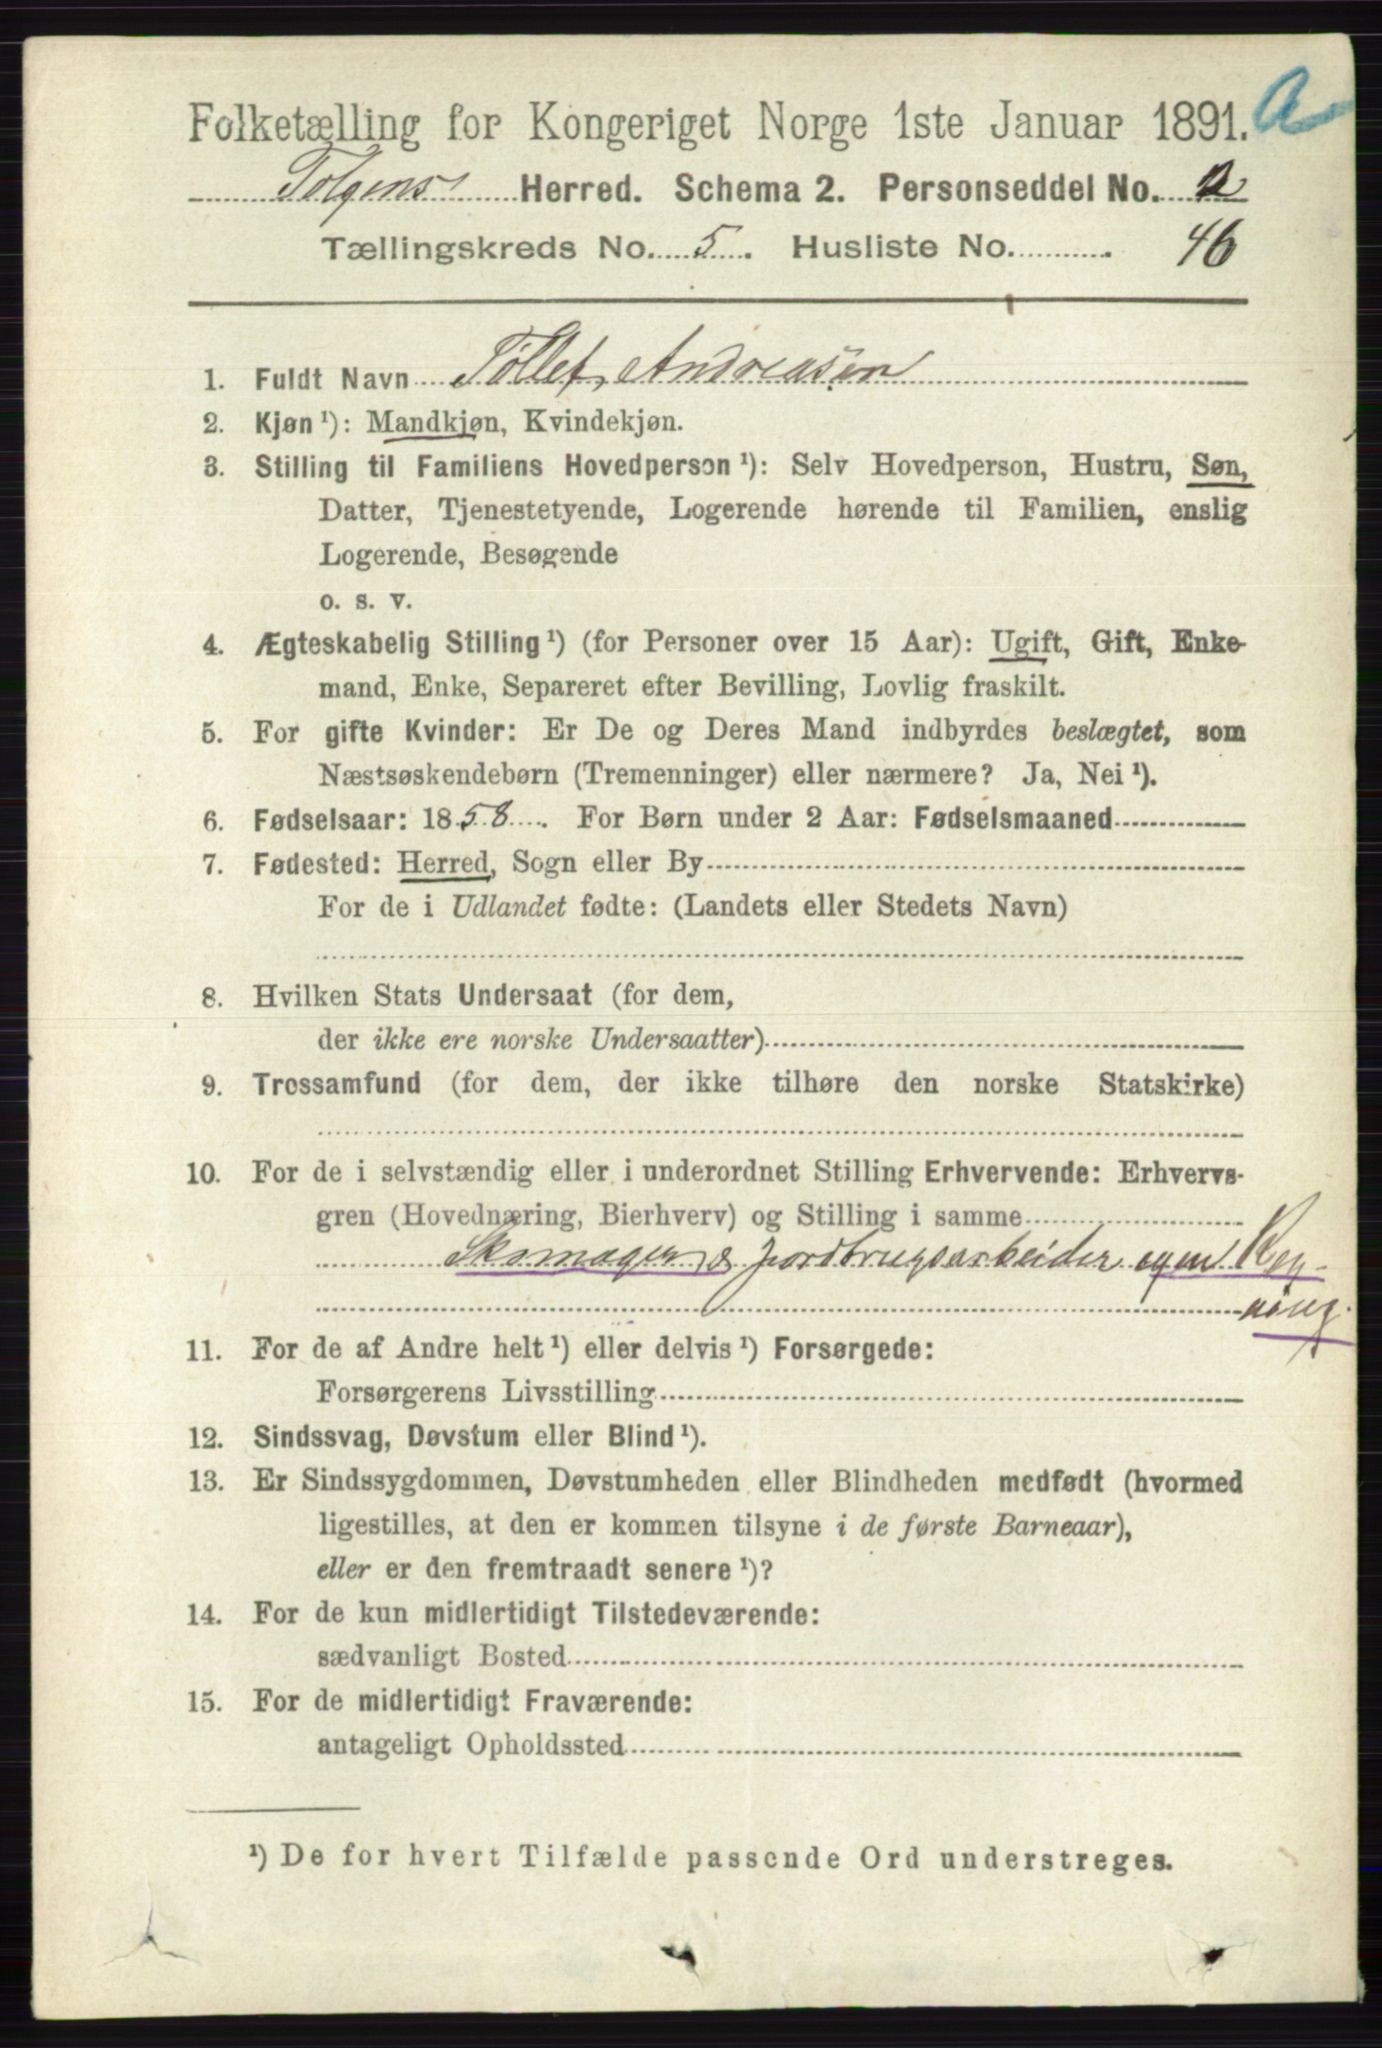 Folketælling for Kongeriget Norge 1ste Januar 1891. a
Tolgens Herred. Schema 2. Personseddel No. 2
Tællingskreds No. 5. Husliste No. 46
1. Fuldt Navn Tollef Andreasen
2. Kjøn ¹): Mandkjøn, Kvindekjøn.
3. Stilling til Familiens Hovedperson ¹): Selv Hovedperson, Hustru, Søn,
Datter, Tjenestetyende, Logerende hørende til Familien, enslig
Logerende, Besøgende
o. s. v.
4. Ægteskabelig Stilling ¹) (for Personer over 15 Aar): Ugift, Gift, Enke-
mand, Enke, Separeret efter Bevilling, Lovlig fraskilt.
5. For gifte Kvinder: Er De og Deres Mand indbyrdes beslægtet, som
Næstsøskendebørn (Tremenninger) eller nærmere? Ja, Nei ¹).
6. Fødselsaar: 1858. For Børn under 2 Aar: Fødselsmaaned
7. Fødested: Herred, Sogn eller By
For de i Udlandet fødte: (Landets eller Stedets Navn)
8. Hvilken Stats Undersaat (for dem,
der ikke ere norske Undersaatter)
9. Trossamfund (for dem, der ikke tilhøre den norske Statskirke)
10. For de i selvstændig eller i underordnet Stilling Erhvervende: Erhvervs-
gren (Hovednæring, Bierhverv) og Stilling i samme
Skomager & jordbrugsarbeider egen Reg-
ning.
11. For de af Andre helt ¹) eller delvis ¹) Forsørgede:
Forsørgerens Livsstilling
12. Sindssvag, Døvstum eller Blind ¹).
13. Er Sindssygdommen, Døvstumheden eller Blindheden medfødt (hvormed
ligestilles, at den er kommen tilsyne i de første Barneaar),
eller er den fremtraadt senere ¹)?
14. For de kun midlertidigt Tilstedeværende:
sædvanligt Bosted
15. For de midlertidigt Fraværende:
antageligt Opholdssted
¹) De for hvert Tilfælde passende Ord understreges.